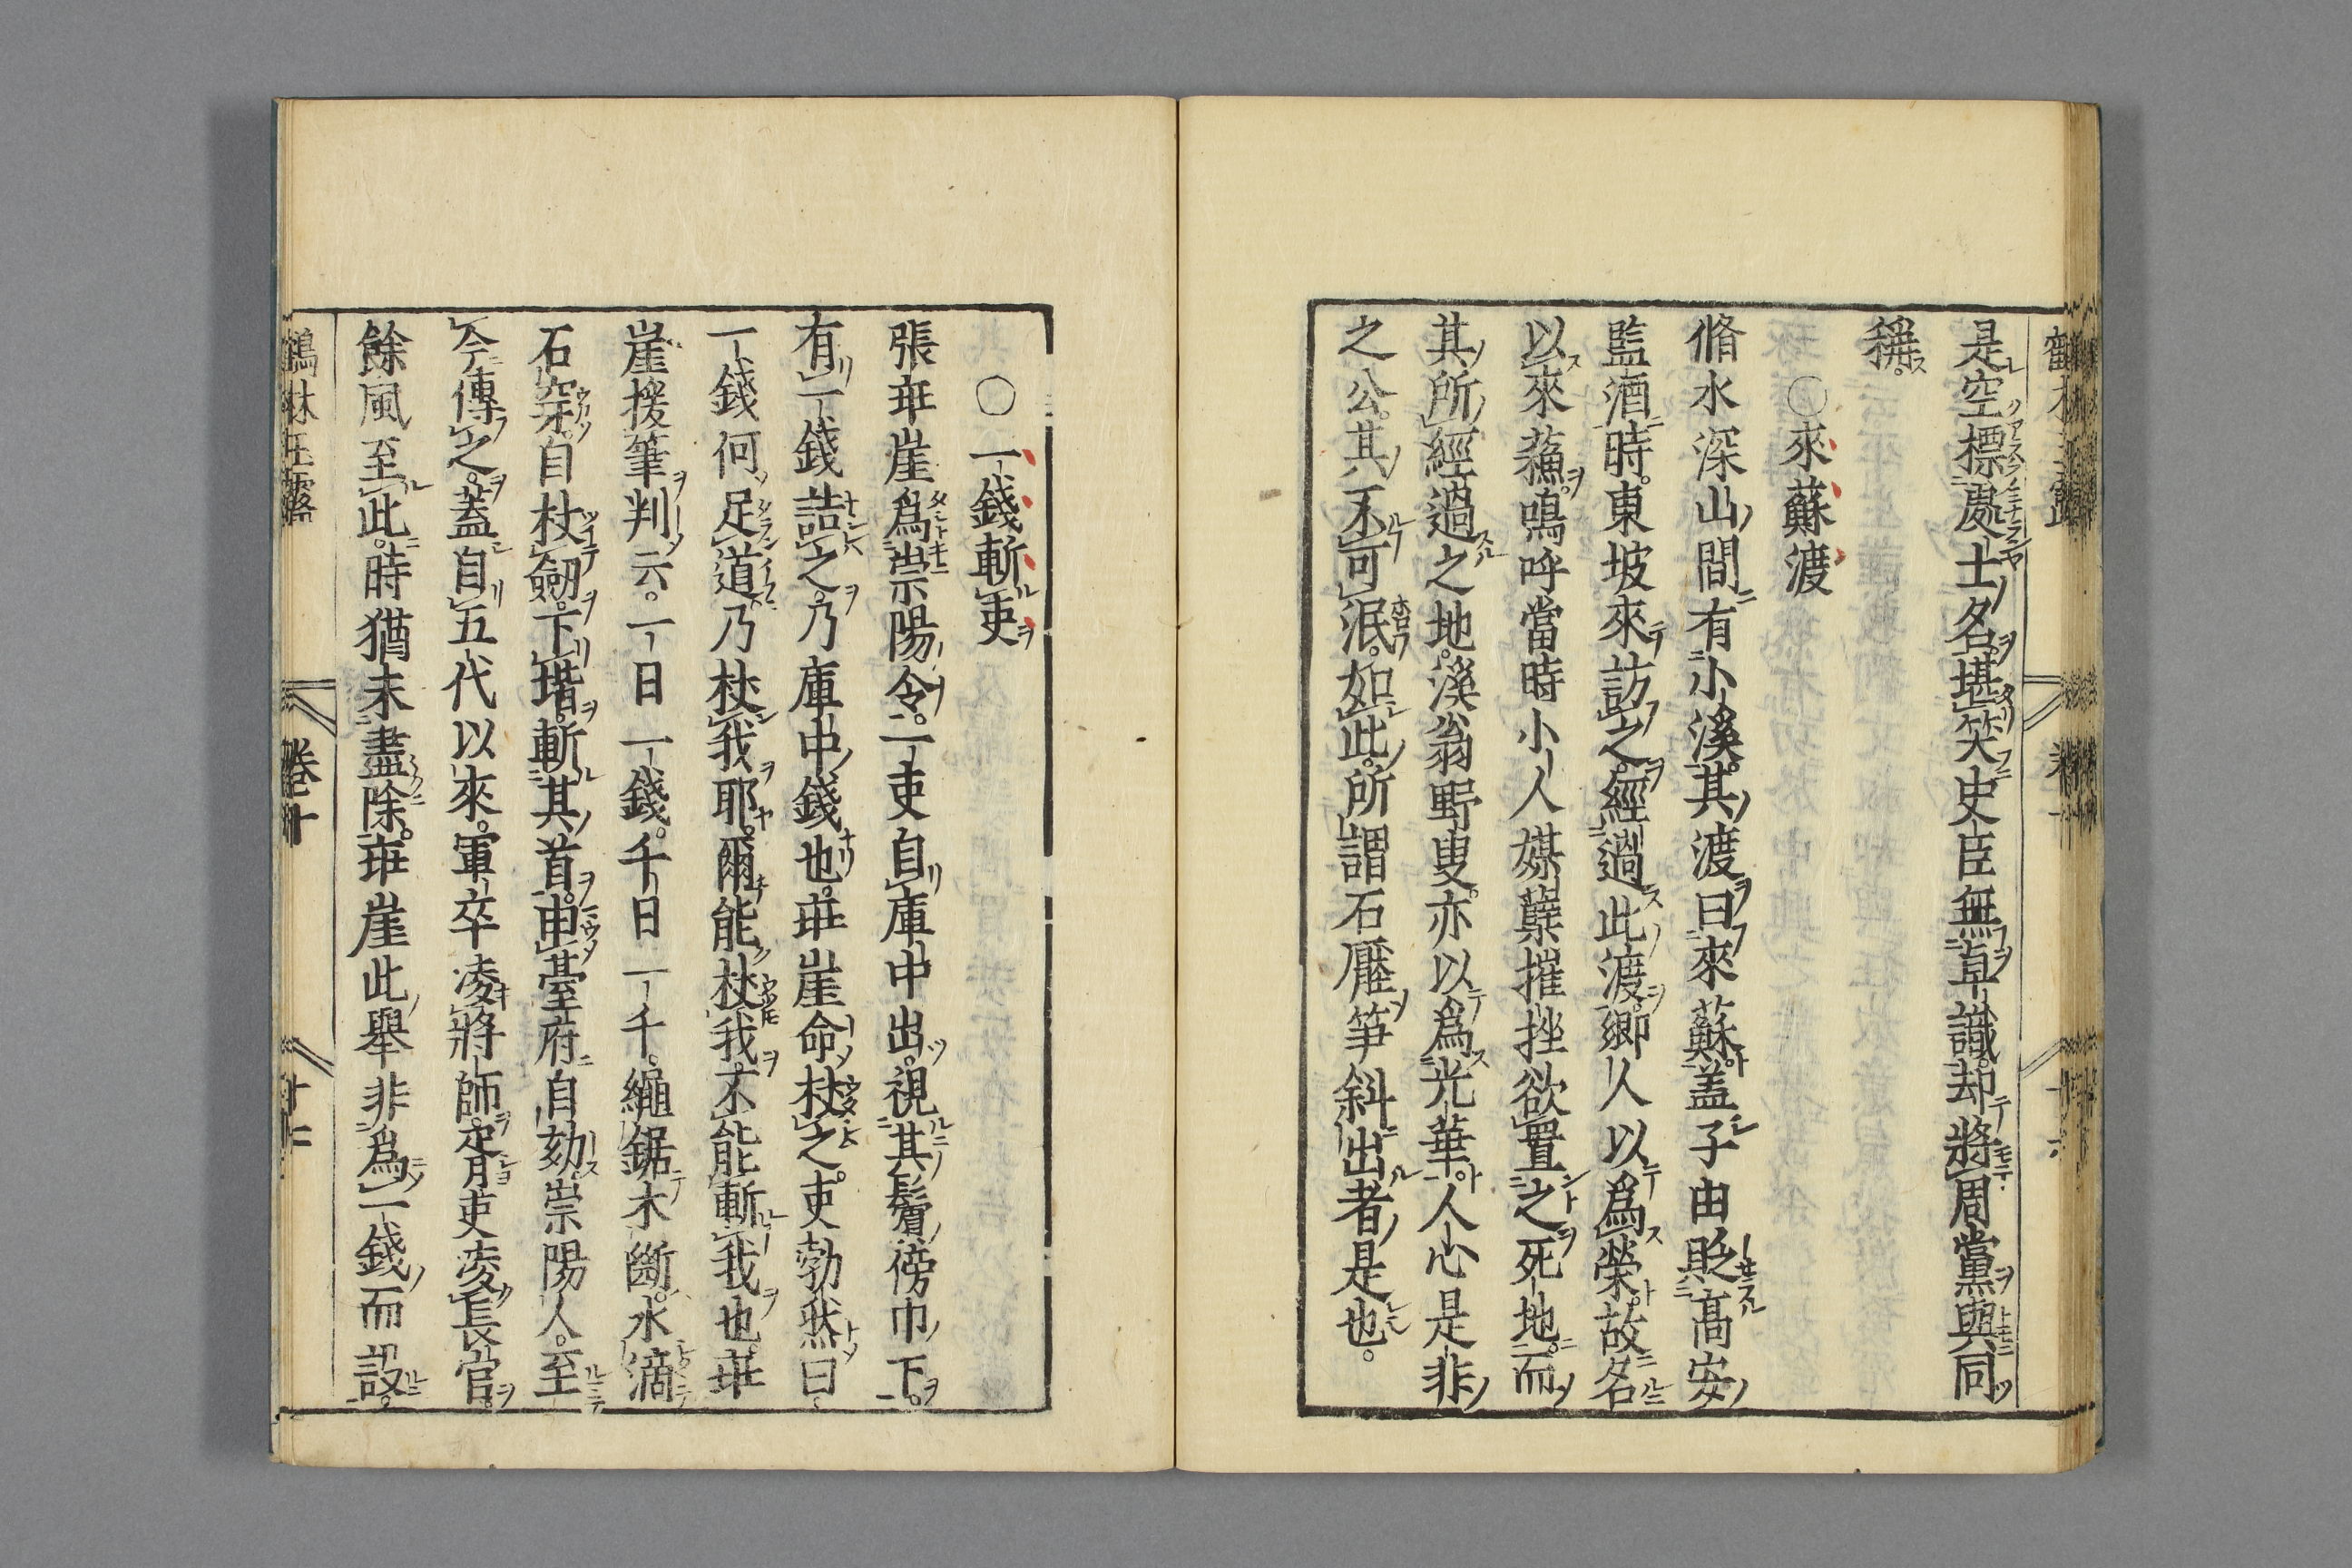 是空標處士名堪笑史臣無卓識却將周黨與同
稱
〇來蘇渡
脩水深山間有小溪其渡曰來蘇盖子由貶髙安
監酒時東坡來訪之經過此渡鄉人以爲榮故名
以來蘇嗚呼當時小人媒蘖摧挫欲置之死地而
其所經過之地溪翁野叟亦以爲光華人心是非
之公其不可泯如此所謂石壓笋斜出者是也
〇一錢斬吏
張乖崖爲崇陽令一吏自庫中出視其鬢傍巾下
有一錢詰之乃庫中錢也乖崖命杖之吏勃然曰
一錢何足道乃杖我耶爾能杖我不能斬我也乖
崖援筆判云一日一錢千日一千繩鋸木斷水滴
石穿自杖劒下堦斬其首申臺府自劾崇陽人至
今傳之蓋自五代以來軍卒凌將師胥吏凌長官
餘風至此時猶未盡除乖崖此舉非爲一錢而設
鶴林玉露 卷十 十二